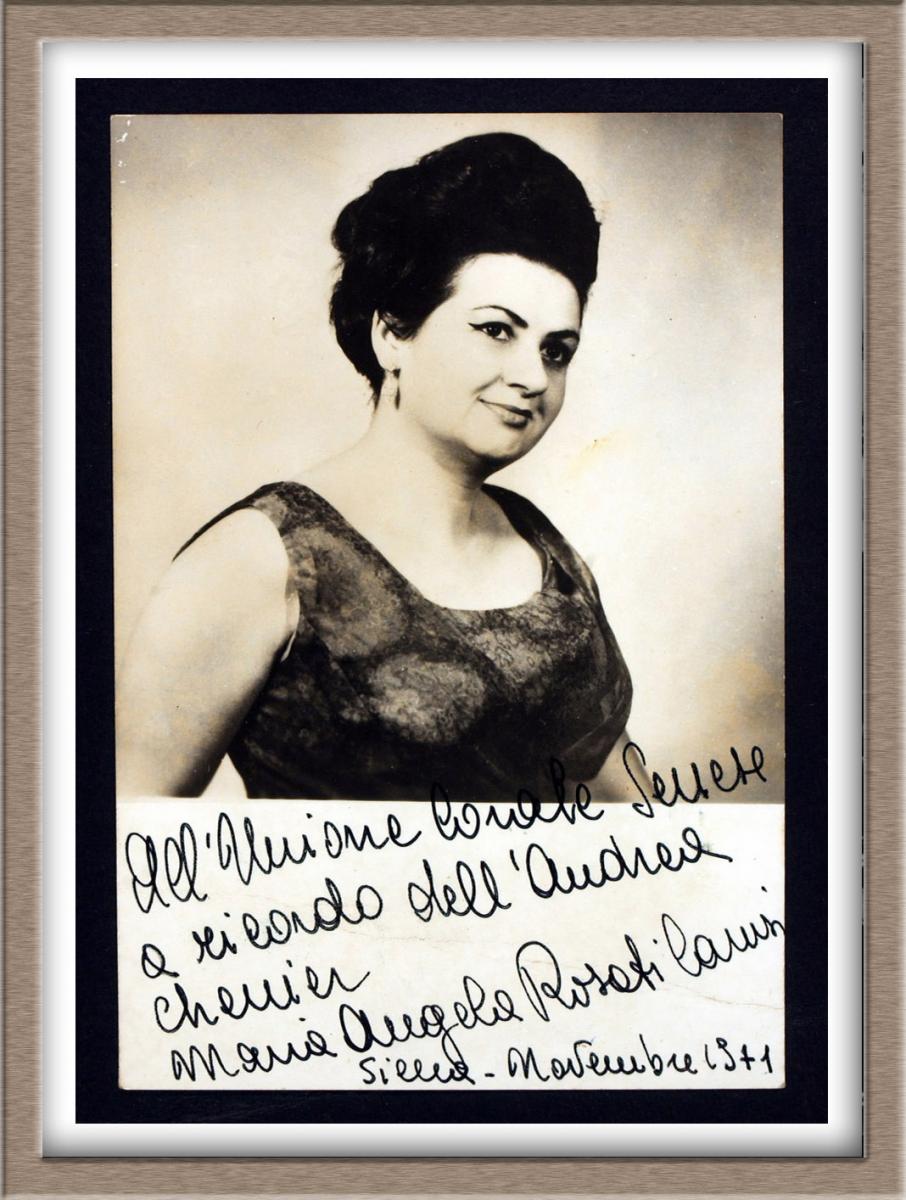 All'Unione Corale Senese
a ricordo dell'Andrea
Chenier
Maria Angela Rosati
Siena - Novembre 1971